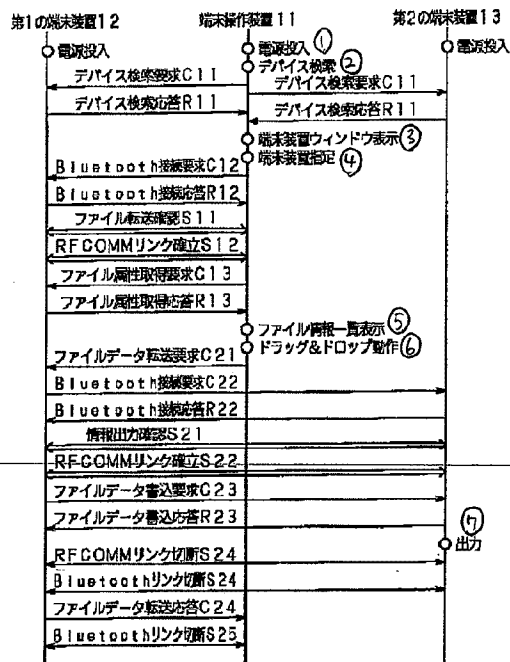 第1の端末装置12 端末操作装置11 第2の端末装置13
電源投入 電源投入① 電源投入
デバイス検索②
デバイス検索要求C11 デバイス検索要求C11
デバイス検索応答R11 デバイス検索応答R11
端末装置ウィンドウ表示③
端末装置指定④
Bluetooth接続要求C12
Bluetooth接続応答R12
ファイル転送確認S11
RFCOMMリンク確立S12
ファイル属性取得要求C13
ファイル属性取得応答R13
ファイル情報一覧表示⑤
ドラッグ&ドロップ動作⑥
ファイルデータ転送要求C21
Bluetooth接続要求C22
Bluetooth接続応答R22
情報出力確認S21
RFCOMMリンク確立S22
ファイルデータ書込要求C23
ファイルデータ書込応答R23
⑦
出力
RFCOMMリンク切断S24
Bluetoothリンク切断S24
ファイルデータ転送応答C24
Bluetoothリンク切断S25